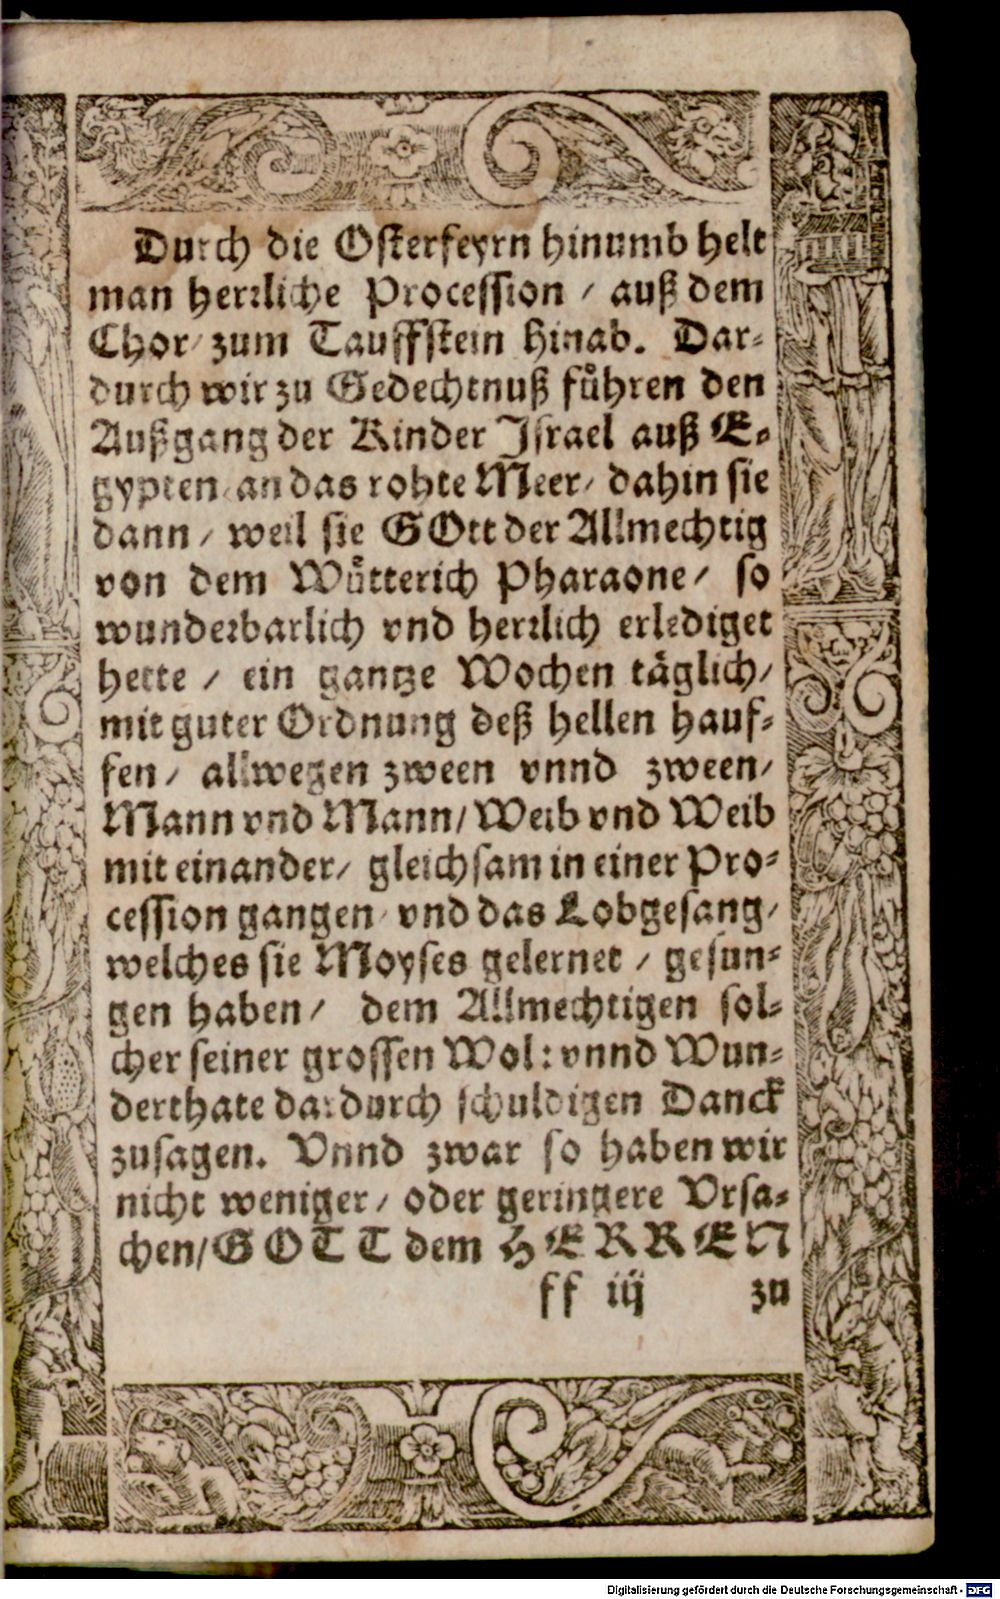 Durch die Osterfeyrn hinumb helt
man herrliche Procession / auß dem
Chor / zum Tauffstein hinab. Dar-
durch wir zu Gedechtnuß fuͤhren den
Außgang der Kinder Jsrael auß E-
gypten / an das rohte Meer / dahin sie
dann / weil sie GOtt der Allmechtig
von dem Wuͤtterich Pharaone / so
wunderbarlich vnd herrlich erlediget
hette / ein gantze Wochen taͤglich /
mit guter Ordnung deß hellen hauf-
fen / allwegen zween vnnd zween /
Mann vnd Mann / Weib vnd Weib
mit einander / gleichsam in einer Pro-
cession gangen / vnd das Lobgesang /
welches sie Moyses gelernet / gesun-
gen haben / dem Allmechtigen sol-
cher seiner grossen Wol: vnnd Wun-
derthate dardurch schuldigen Danck
zusagen. Vnnd zwar so haben wir
nicht weniger / oder geringere Vrsa-
chen / GOTT dem HERREN
ff iij zu
Digitalisierung gefördert durch die Deutsche Forschungsgemeinschaft - DFG